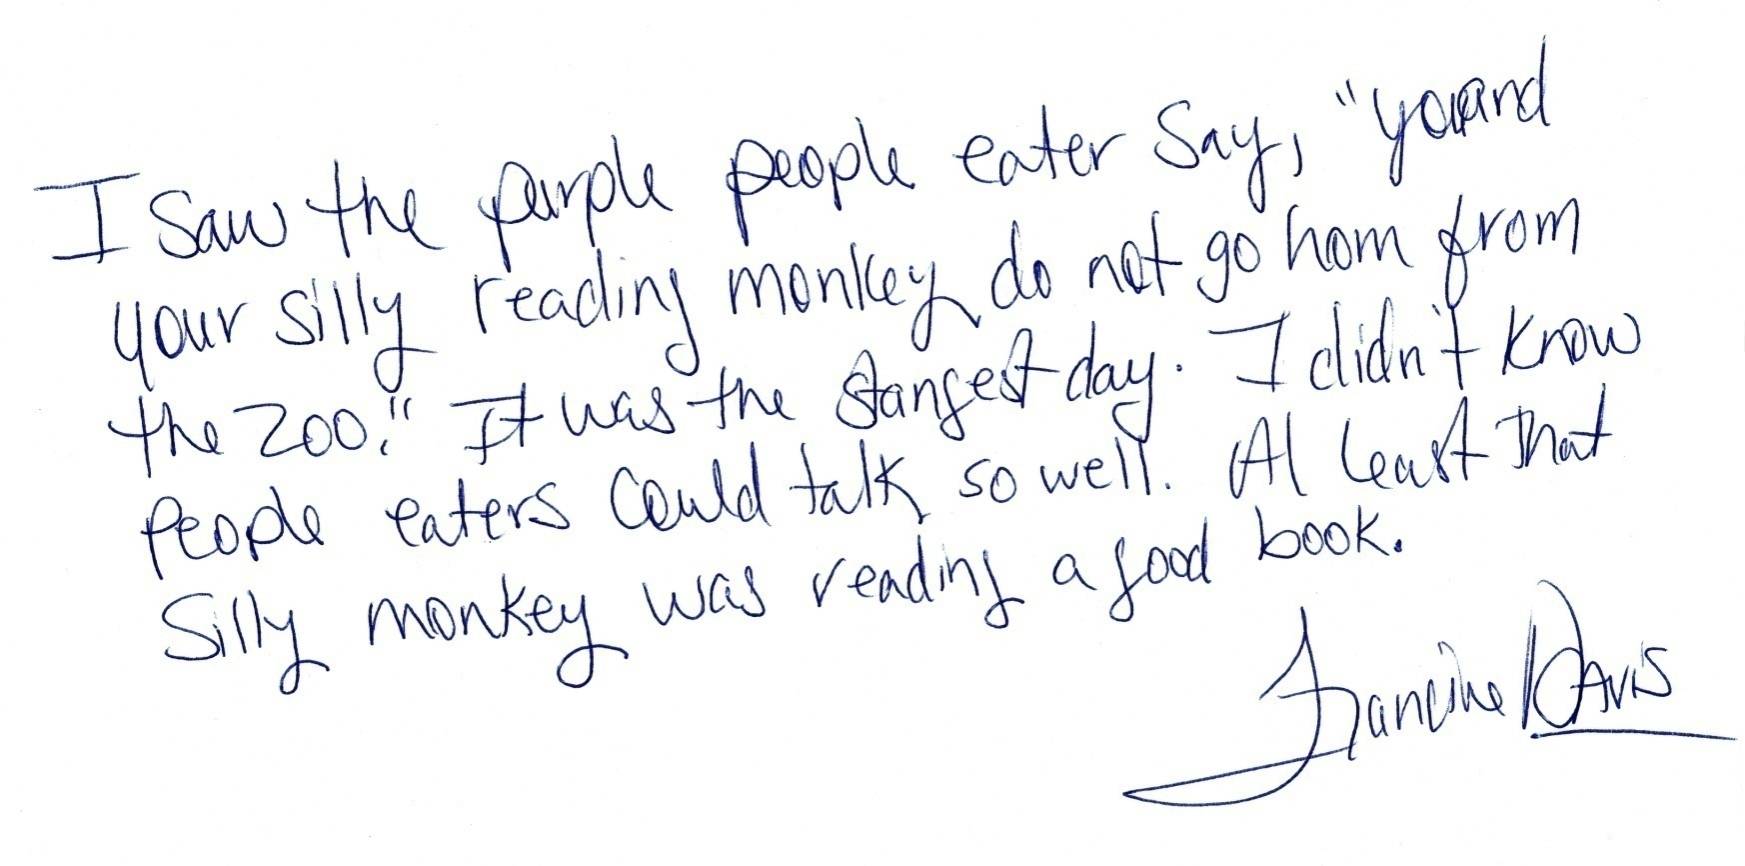 I Saw the purple people eater Say, "you and
your silly reading monkey do not go hom from
the zoo." It was the stangest day. I didn't know
people eaters Could talk so well. Al least that
Silly monkey was reading a good book.
Francine Davis